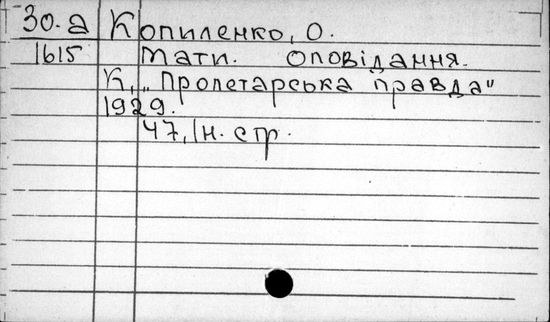 30.а Копиленко, О.
1615 Мати. Оповідання.
К., "Пролетарська правда"
1929.
47, Iн. стр.